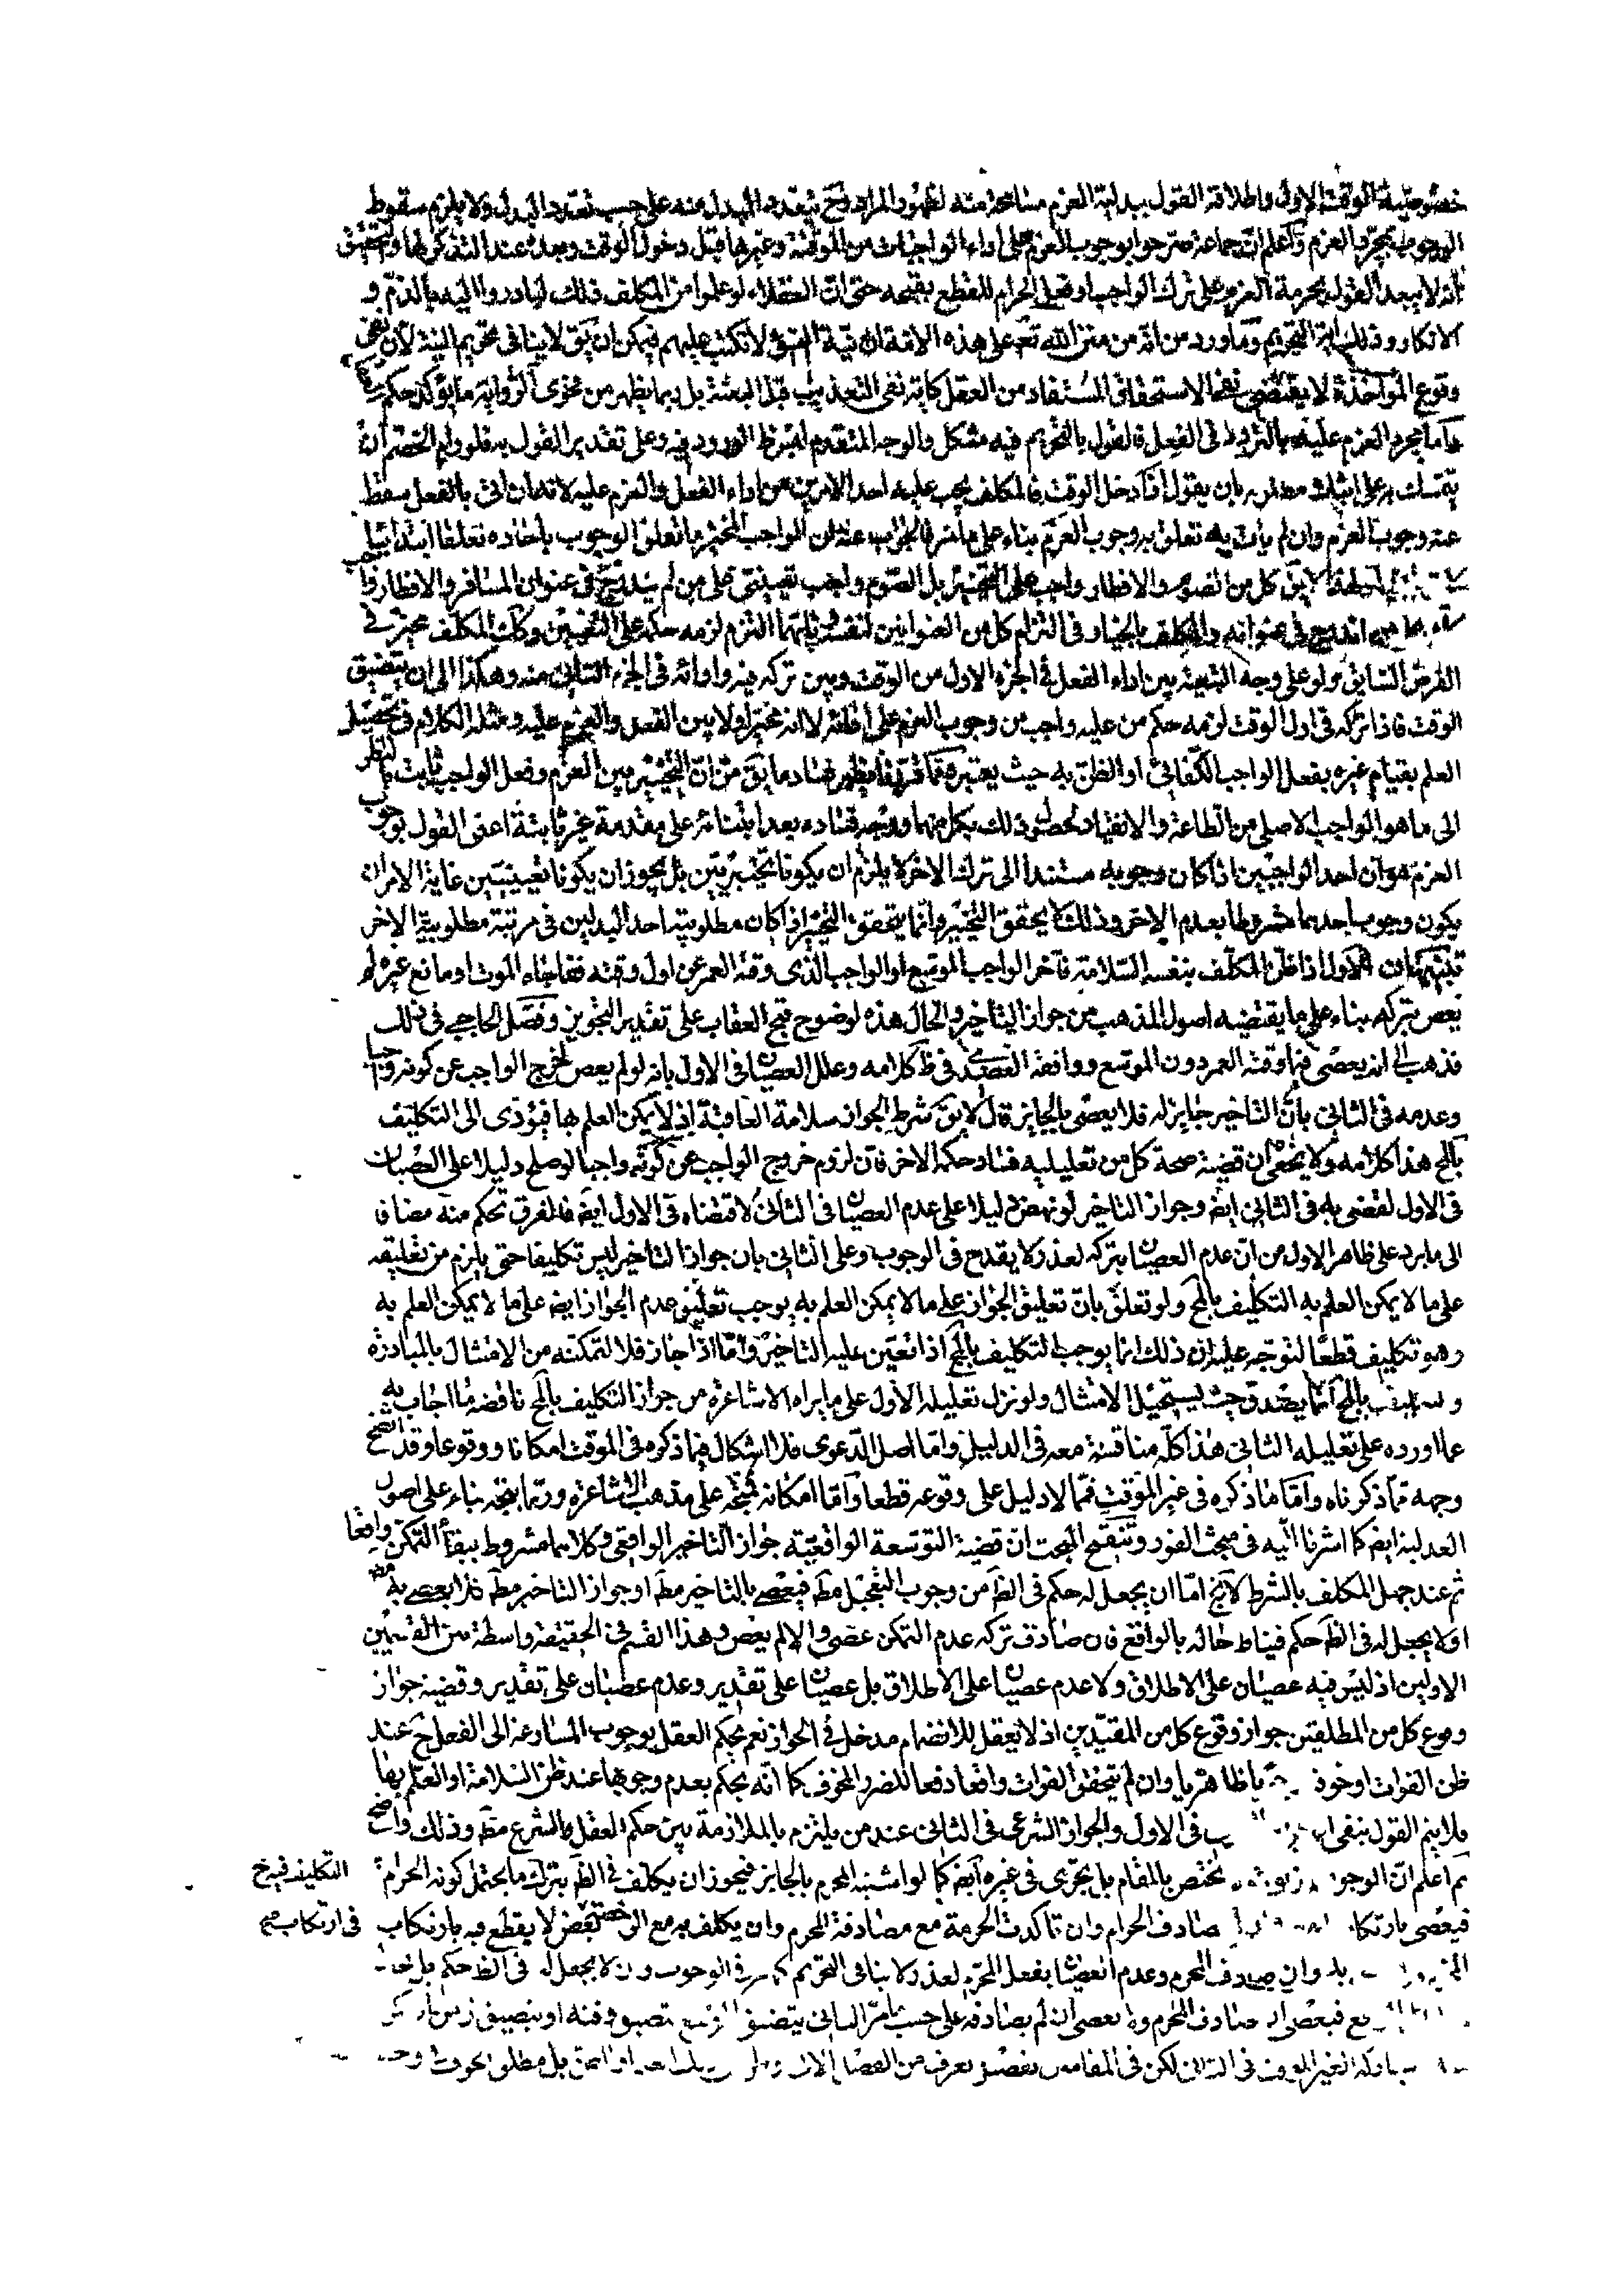 خصوصية الوقت الاول واطلاقه القول ببدلية العزم مسامحة منه لظهور المراد وح يتعدد البدل منه على حسب تعدد البدل ولا يلزم سقوط
الوجوب بمجرد العزم واعلم ان جماعة صرحوا بوجوب العزم على اداء الواجبات من الموقتة وغيرها قبل دخول الوقت وبعده عند التذكر لها والتحقيق
انه لا يبعد القول بحرمة العزم على ترك الواجب او فعل الحرام للقطع بقبحه حتى ان العقلاء لو علموا من المكلف ذلك لبادروا اليه بالذم و
الانكار وذلك اية التحريم وما ورد من انه من منن الله تعالى على هذه الامة ان نية الفسق لا تكتب عليهم فيمكن ان يق لا ينافى تحريم النية لان نفى
وقوع المؤاخذة لا يقتضى نفى الاستحقاق المستفاد من العقل كاية نفى التعذيب قبل البعثة بل ربما يظهر من فحوى الرواية ما يؤكد حكم
واما مجرد العزم عليه بالتردد فى الفعل فالقول بالتحريم فيه مشكل والوجه المتقدم لم يرد فيه وعلى تقدير القول به فلو رام الخصم ان
يتمسك به على اثبات مطلبه بان يقول اذا دخل الوقت فالمكلف يجب عليه احد الامرين من اداء الفعل والعزم عليه لانه ان اتى بالفعل سقط
عنه وجوب العزم وان لم يات به تعلق به وجوب العزم بناء على ما مر فالجواب عنه ان الواجب المخير ما تعلق الوجوب باحاده تعلقا ابتدائيا
لا يق كل من الصوم والافطار واجب على التخيير بل الصوم واجب تعيينى على من لم يندرج فى عنوان المسافر والافطار واجب
اندرج فى عنوانه والمكلف بالخيار فى التزام كل من العنوانين لنفسه وايهما التزم لزمه حكمه على التعيين وكان المكلف مخير فى
الفرض السابق ولو على وجه التبعية بين اداء الفعل فى الجزء الاول من الوقت وبين تركه فيه وادائه فى الجزء الثانى منه وهكذا الى ان يتضيق
الوقت فاذا تركه فى اول الوقت لزمه حكم من عليه واجب من وجوب العزم على ادائه لا انه مخير اولا بين الفعل والعزم عليه ومثله الكلام فى تحصيل
العلم بقيام غيره بفعل الواجب الكفائى او الظن به حيث يعتبر ومما قررنا يظهر فساد ما يق من ان التخيير بين العزم وفعل الواجب ثابت بالنظر
الى ما هو الواجب الاصلى من الطاعة والانقياد لحصول ذلك بكل منهما ووجه فساده بعد ابتنائه على مقدمة غير ثابتة اعنى القول بوجوب
العزم هو ان احد الواجبين اذا كان وجوبه مستندا الى ترك الاخر لا يلزم ان يكونا تخييريين بل يجوز ان يكونا تعيينيين غاية الامر ان
يكون وجوب احدهما مشروطا بعدم الاخر وذلك لا يحقق التخيير وانما يتحقق التخيير اذا كان مطلوبية احد البدلين فى مرتبة مطلوبية الاخر
تنبيهان الاول اذا ظن المكلف بنفسه السلامة فاخر الواجب الموسع او الواجب الذى وقته العمر عن اول وقته ففاجاه الموت او مانع غيره لم
يعص بتركه بناء على ما يقتضيه اصول المذهب من جواز التاخير والحال هذه لوضوح قبح العقاب على تقدير التجويز وفصل الحاجبى فى ذلك
فذهب الى انه يعصى فيما وقته العمر دون الموسع ووافقه العضدى فى ظ كلامه وعلل العصيان فى الاول بانه لو لم يعص لخرج الواجب عن كونه واجبا
وعدمه فى الثانى بان التاخير جايز له فلا يعصى بالجايز قال لا يق شرط الجواز سلامة العاقبة اذ لا يمكن العلم بها فيؤدى الى التكليف
بالمح هذا كلامه ولا يخفى ان قضية صحة كل من تعليليه فساد حكمه الاخر فان لزوم خروج الواجب عن كونه واجبا لو صلح دليلا على العصيان
فى الاول لقضى به فى الثانى ايض وجواز التاخير لو نهض دليلا على عدم العصيان فى الثانى لاقتضاه فى الاول ايض فالفرق تحكم منه مضافا
الى ما يرد على ظاهر الاول من ان عدم العصيان بتركه لعذر لا يقدح فى الوجوب وعلى الثانى بان جواز التاخير ليس تكليفا حتى يلزم من تعليقه
على ما لا يمكن العلم به التكليف بالمح ولو تعلق بان تعليق الجواز على ما لا يمكن العلم به يوجب تعليق عدم الجواز ايض على ما لا يمكن العلم به
وهو تكليف قطعا لتوجه عليه ان ذلك انما يوجب التكليف بالمح اذا تعين عليه التاخير واما اذا جاز فلا لتمكنه من الامتثال بالمبادرة
والتكليف بالمح انما يصدق حيث يستحيل الامتثال ولو نزل تعليله الاول على ما يراه الاشاعرة من جواز التكليف بالمح ناقضه ما اجاب به
عما اورده على تعليله الثانى هذا كله مناقشة معه فى الدليل واما اصل الدعوى فلا اشكال فيما ذكره فى الموقت امكانا ووقوعا وقد اتضح
وجهه مما ذكرناه واما ما ذكره فى غير الموقت فمما لا دليل على وقوعه قطعا واما امكانه فمتجه على مذهب الاشاعرة وربما يتجه بناء على اصول
العدلية ايض كما اشرنا اليه فى مبحث الفور وتنقيح المبحث ان قضية التوسعة الواقعية جواز التاخير الواقعى وكلاهما مشروط ببقاء التمكن واقعا
ثم عند جهل المكلف بالشرط لا يخ اما ان يجعل له حكم فى الظ من وجوب التعجيل مط فيعصى بالتاخير مط او جواز التاخير مط فلا يعصى به مط
او لا يجعل له فى الظ حكم فيناط حاله بالواقع فان صادف تركه عدم التمكن عصى والا لم يعص وهذا القسم فى الحقيقة واسطة بين القسمين
الاولين اذ ليس فيه عصيان على الاطلاق ولا عدم عصيان على الاطلاق بل عصيان على تقدير وعدم عصيان على تقدير وقضية جواز
وقوع كل من المطلقين جواز وقوع كل من المقيدين اذ لا يعقل للانضمام مدخل فى الجواز نعم يحكم العقل بوجوب المسارعة الى الفعل ح عند
ظن الفوات او خوفه ظاهريا وان لم يتحقق الفوات واقعا دفعا للضرر المخوف كما انه يحكم بعدم وجوبها عند ظن السلامة او العلم بها
فلا يتم القول بنفى فى الاول والجواز الشرعى فى الثانى عند من يلتزم بالملازمة بين حكم العقل والشرع مط وذلك واضح
ثم اعلم ان الوجوه يختص بالمقام بل يجرى فى غيره ايض كما لو اشتبه المحرم بالجايز فيجوز ان يكلف فى الظ بترك ما يحتمل كونه الحرام
التكليف فيه ح
فيعصى بارتكابه صادف الحرام وان تاكدت الحرمة مع مصادفة المحرم وان يكلف به مع الرخصة بعض لا يقطع فيه بارتكاب
فى ارتكاب صح
وان صادف المحرم وعدم العصيان بفعل المحرم لعذر لا ينافى التحريم كما مر فى الوجوب وان لا يجعل له فى الظ حكم بل
فيعصى ان صادف المحرم ولا يعصى ان لم يصادفه على حسب ما مر الثانى يتضيق الموسع بتضيق وقته او بتضييق
الغير الموقت فى الثانى لكن فى المقامين تفصيل يعرف من الفصل بل مطلق الخوف